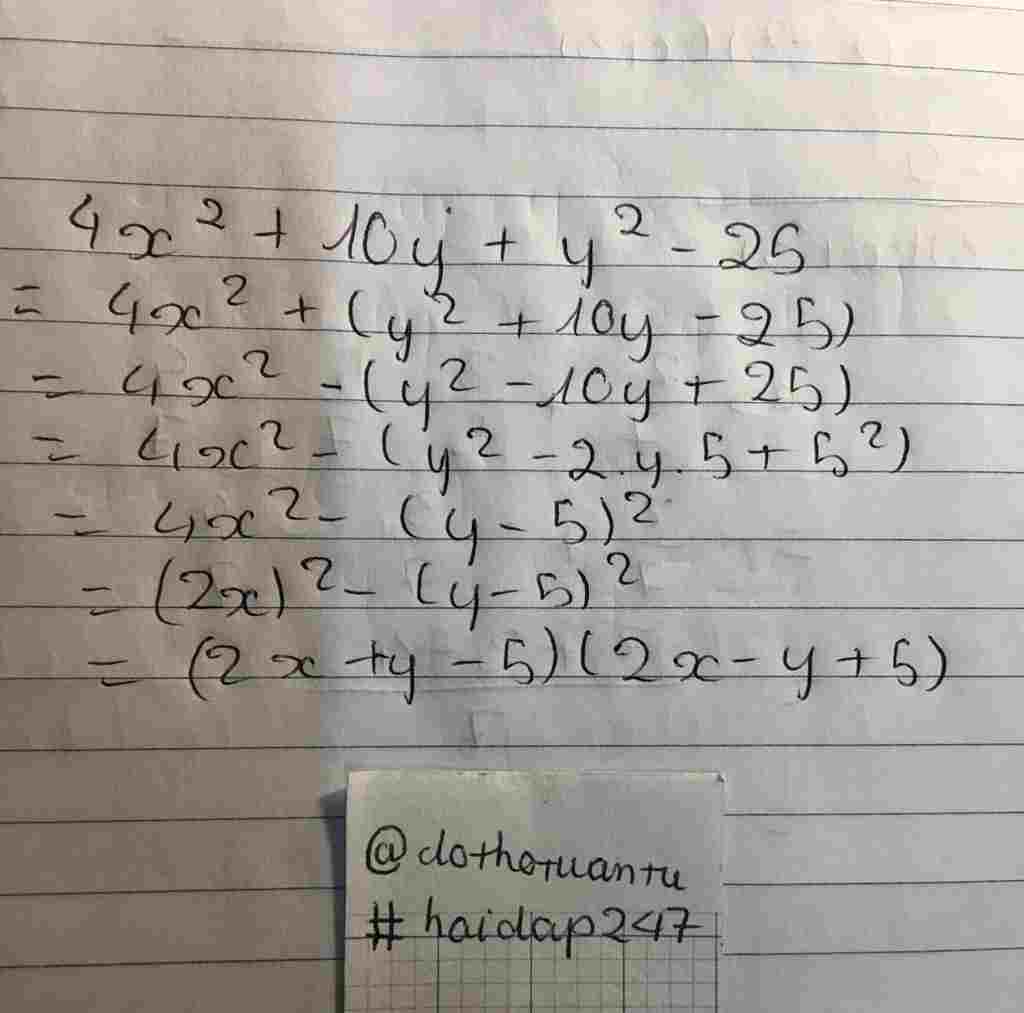 4x² + 10y + y² - 25
= 4x² + (y² + 10y - 25)
= 4x² - (y² - 10y + 25)
= 4x² - (y² - 2.y.5 + 5²)
= 4x² - (y - 5)²
= (2x)² - (y - 5)²
= (2x + y - 5)(2x - y + 5)
@dothotuantu
#haidap247